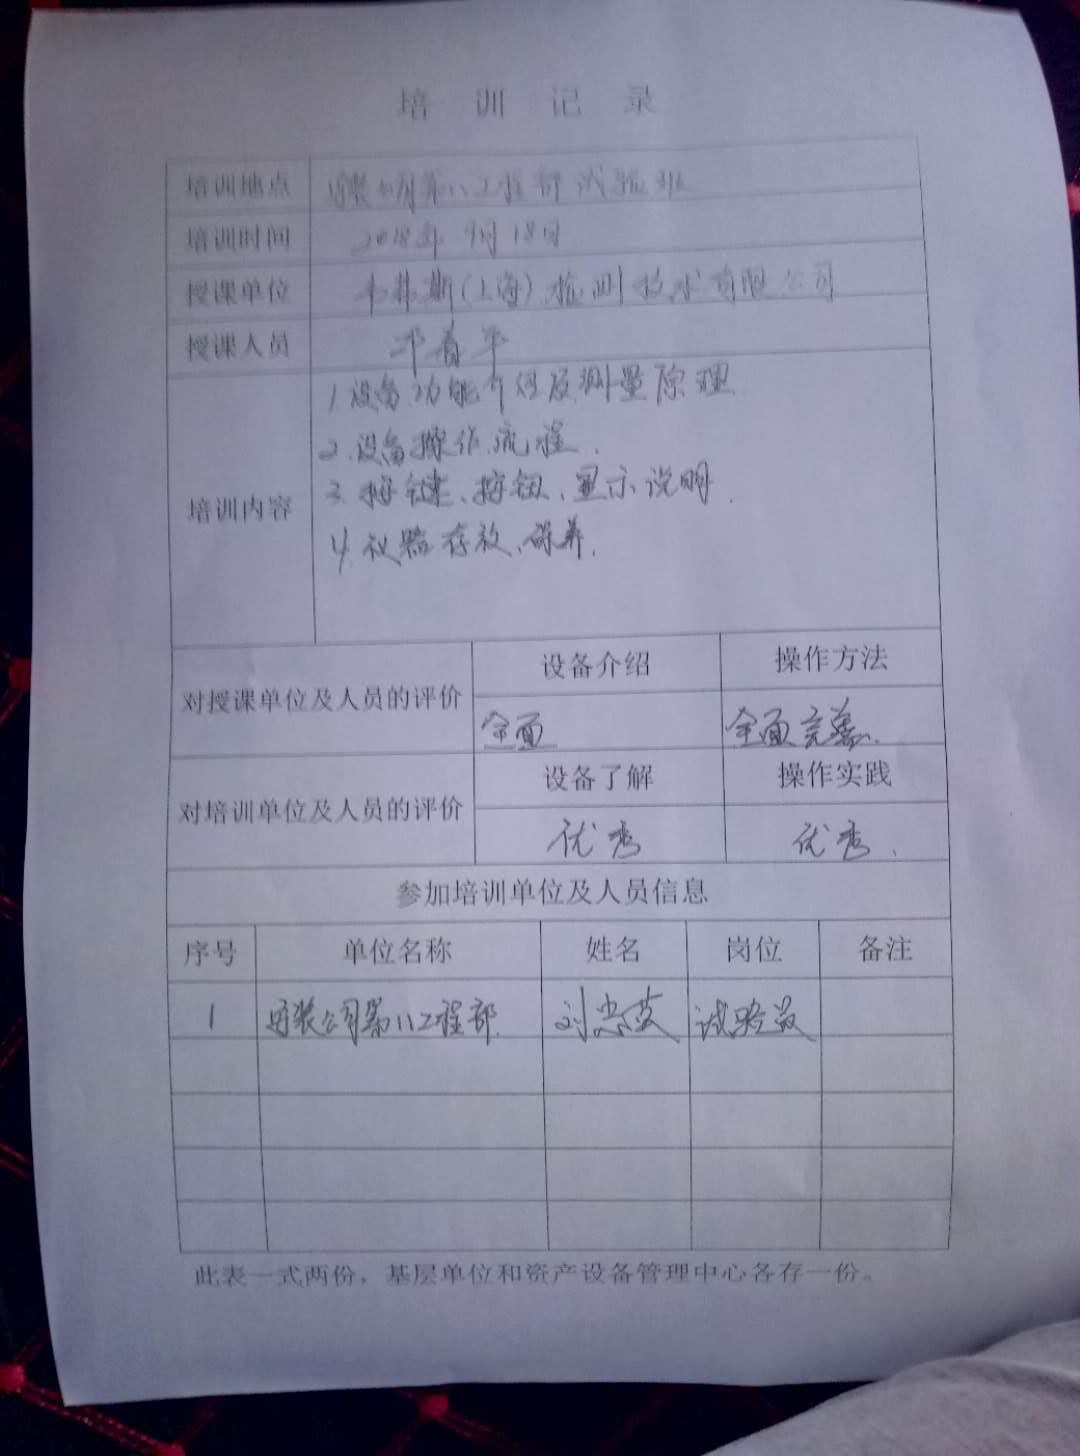 培训记录
培训地点 安装公司第八工程部试验班
培训时间 2018年9月18日
授课单位 韦弗斯(上海)检测技术有限公司
授课人员 春平
培训内容
1.设备功能介绍及测量原理
2.设备操作流程.
3.按键、按钮、显示说明.
4.仪器存放、保养.
对授课单位及人员的评价 设备介绍 操作方法
全面 全面完善.
对培训单位及人员的评价 设备了解 操作实践
优秀 优秀.
参加培训单位及人员信息
序号 单位名称 姓名 岗位 备注
1 安装公司第八工程部 刘忠 试验员
此表一式两份，基层单位和资产设备管理中心各存一份。